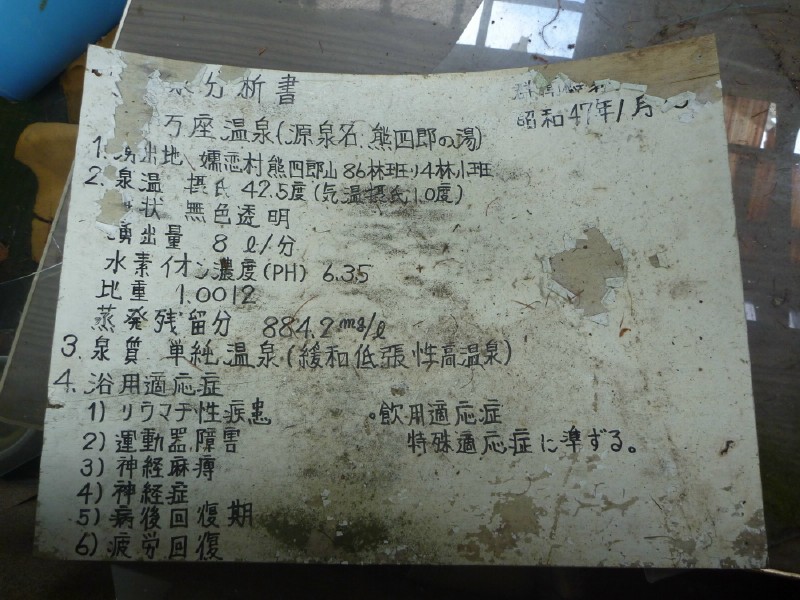 泉分析書
昭和47年1月
万座温泉(源泉名.熊四郎の湯)
1. 湧出地、嬬恋村熊四郎山86林班り4林小班
2. 泉温 摂氏 42.5度(気温摂氏1.0度)
状 無色透明
湧出量 8 ℓ/分
水素イオン濃度(PH) 6.35
比重 1.0012
蒸発残留分 884.2mg/ℓ
3. 泉質 単純温泉(緩和低張性高温泉)
4. 浴用適応症
1) リウマチ性疾患
。飲用適応症
2) 運動器障害
特殊適応症に準ずる。
3) 神経麻痺
4) 神経症
5) 病後回復期
6) 疲労回復